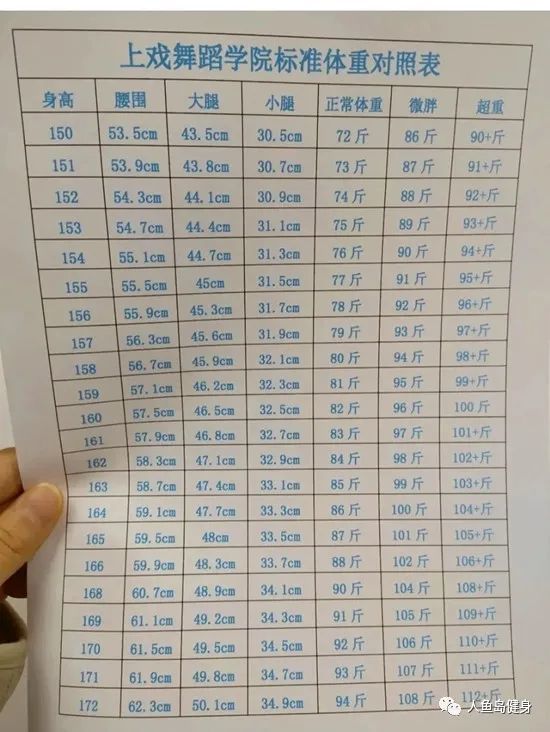 上戏舞蹈学院标准体重对照表
身高 腰围 大腿 小腿 正常体重 微胖 超重
150 53.5cm 43.5cm 30.5cm 72斤 86斤 90+斤
151 53.9cm 43.8cm 30.7cm 73斤 87斤 91+斤
152 54.3cm 44.1cm 30.9cm 74斤 88斤 92+斤
153 54.7cm 44.4cm 31.1cm 75斤 89斤 93+斤
154 55.1cm 44.7cm 31.3cm 76斤 90斤 94+斤
155 55.5cm 45cm 31.5cm 77斤 91斤 95+斤
156 55.9cm 45.3cm 31.7cm 78斤 92斤 96+斤
157 56.3cm 45.6cm 31.9cm 79斤 93斤 97+斤
158 56.7cm 45.9cm 32.1cm 80斤 94斤 98+斤
159 57.1cm 46.2cm 32.3cm 81斤 95斤 99+斤
160 57.5cm 46.5cm 32.5cm 82斤 96斤 100斤
161 57.9cm 46.8cm 32.7cm 83斤 97斤 101+斤
162 58.3cm 47.1cm 32.9cm 84斤 98斤 102+斤
163 58.7cm 47.4cm 33.1cm 85斤 99斤 103+斤
164 59.1cm 47.7cm 33.3cm 86斤 100斤 104+斤
165 59.5cm 48cm 33.5cm 87斤 101斤 105+斤
166 59.9cm 48.3cm 33.7cm 88斤 102斤 106+斤
168 60.7cm 48.9cm 34.1cm 90斤 104斤 108+斤
169 61.1cm 49.2cm 34.3cm 91斤 105斤 109+斤
170 61.5cm 49.5cm 34.5cm 92斤 106斤 110+斤
171 61.9cm 49.8cm 34.7cm 93斤 107斤 111+斤
172 62.3cm 50.1cm 34.9cm 94斤 108斤 112+斤
人鱼岛健身